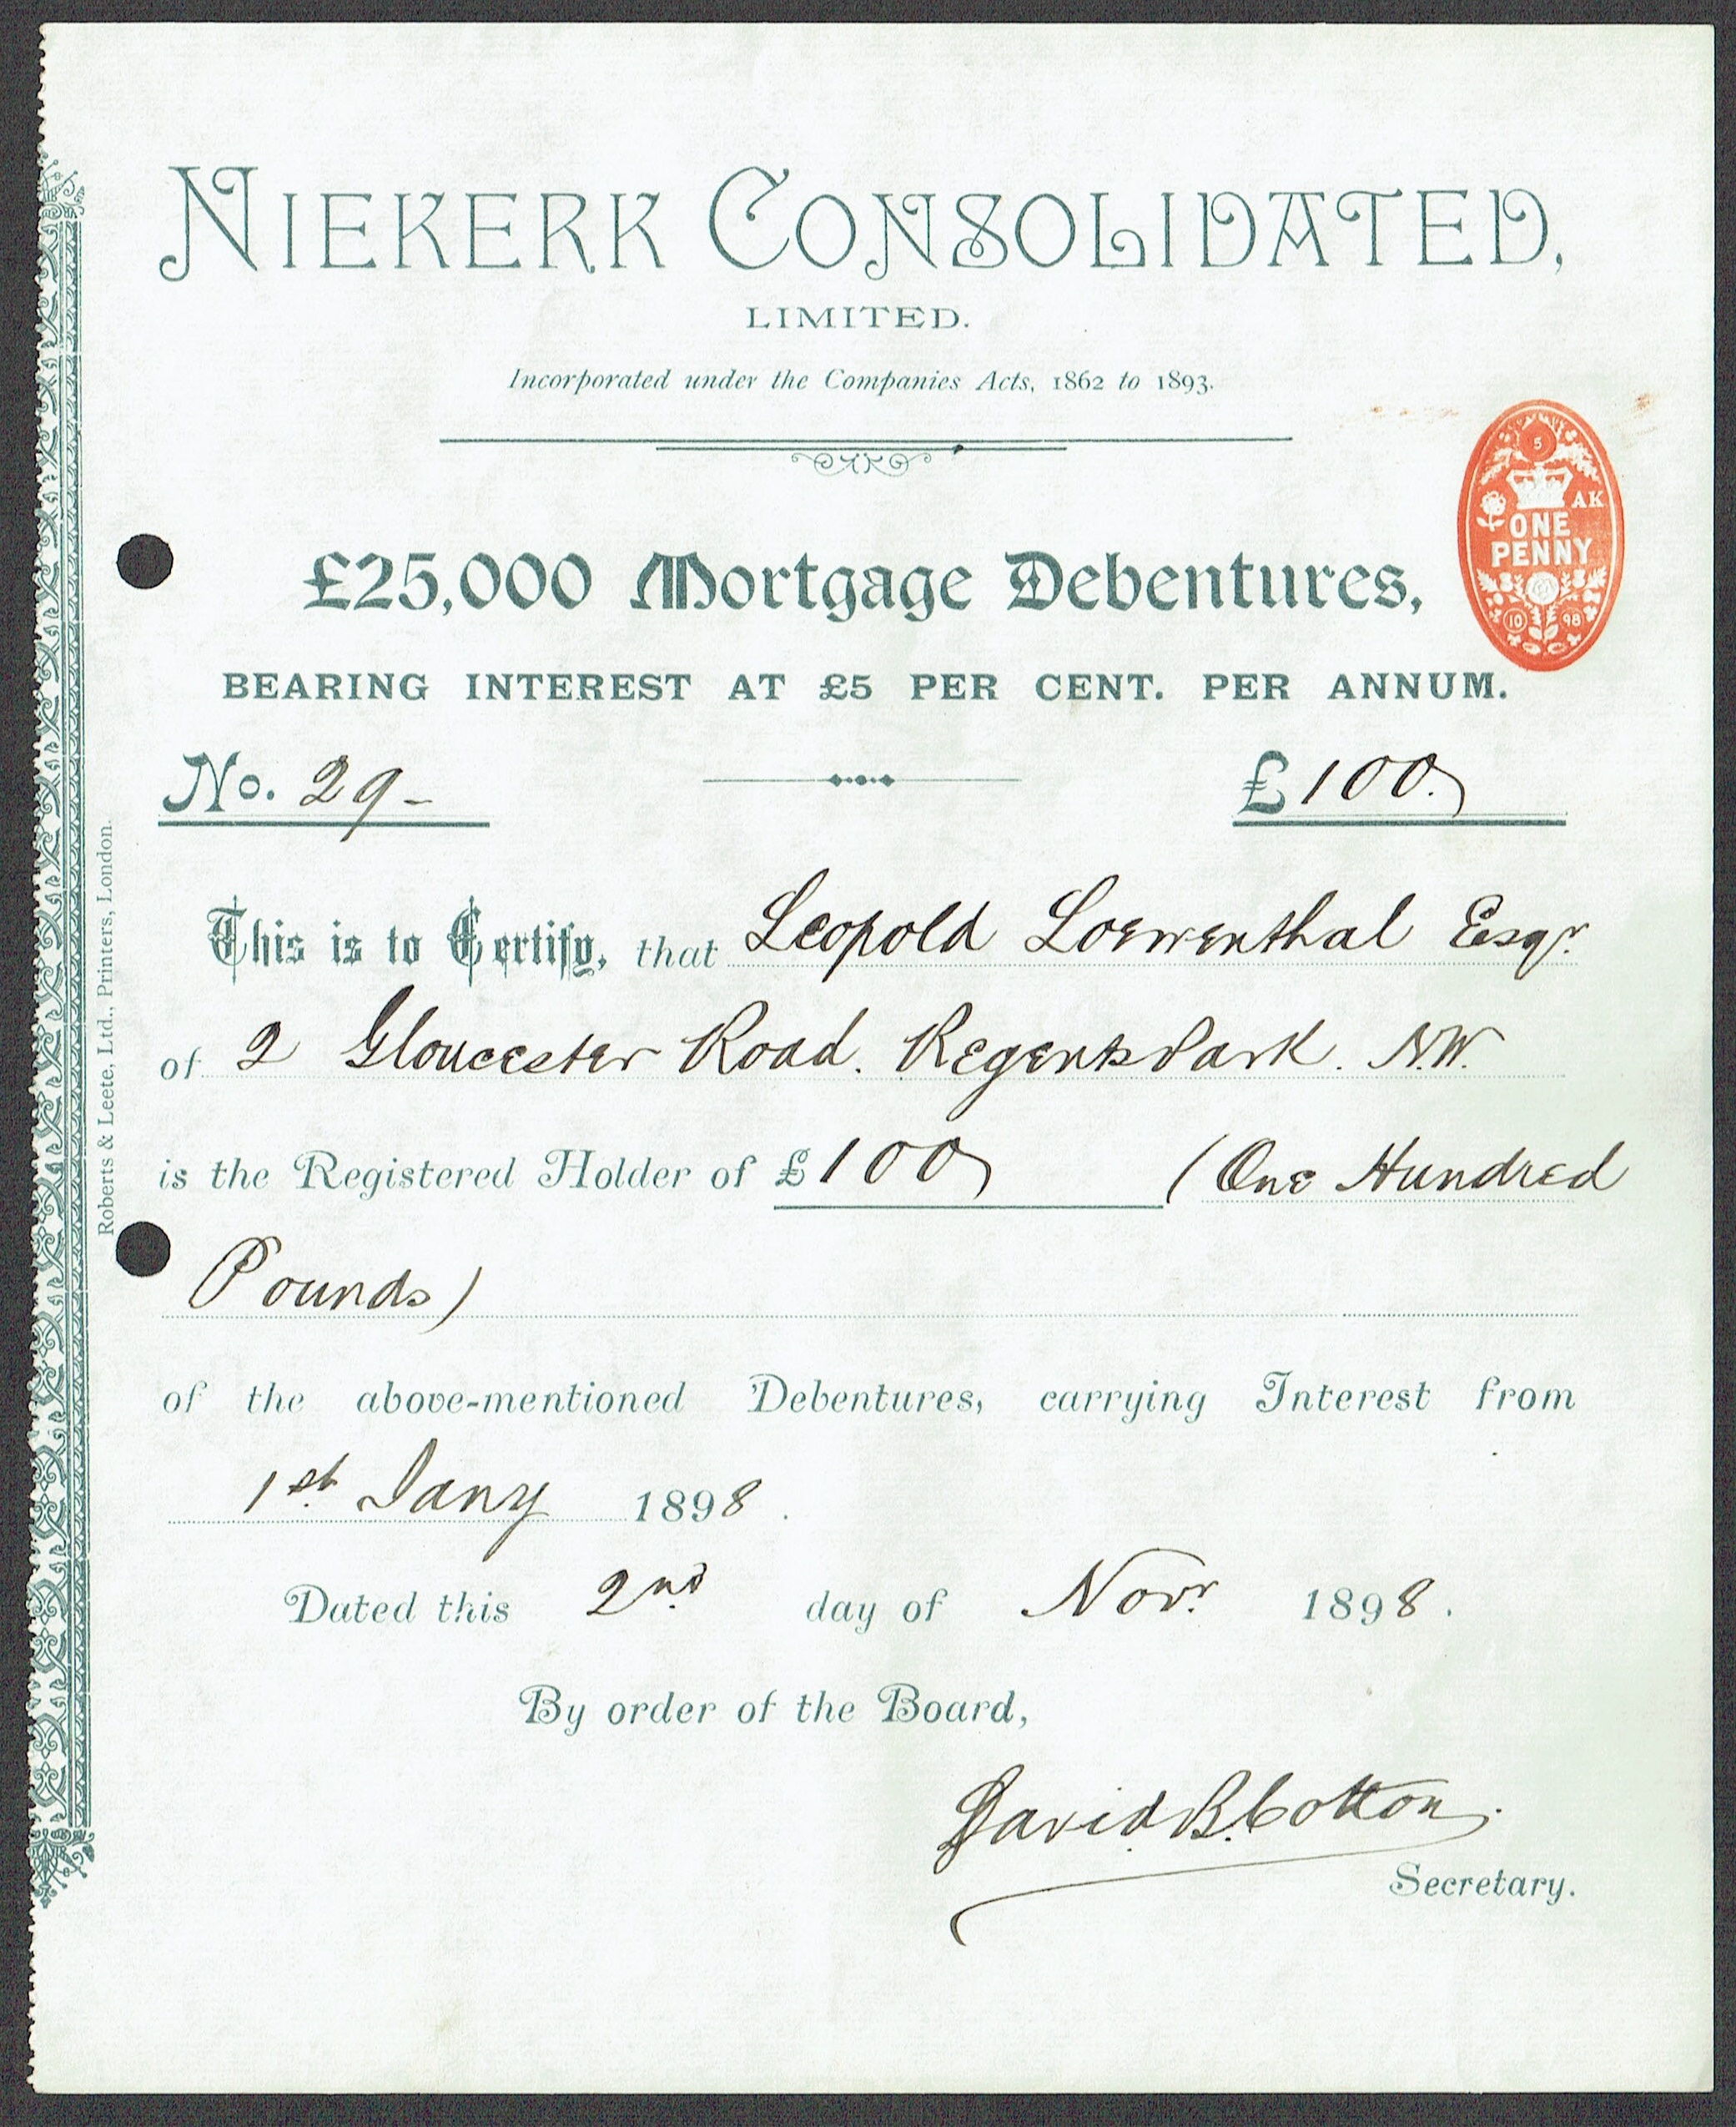 NIEKERK CONSOLIDATED,
LIMITED.
Incorporated under the Companies Acts, 1862 to 1893.
5
AK
ONE
PENNY
10 98
£25,000 Mortgage Debentures,
BEARING INTEREST AT £5 PER CENT. PER ANNUM.
No. 29-
£100.
This is to Certify, that Leopold Loewenthal Esqr.
of 2 Gloucester Road. Regents Park. N.W.
is the Registered Holder of £100 (One Hundred
Pounds)
of the above-mentioned Debentures, carrying Interest from
1st. Jany 1898.
Dated this 2nd. day of Novr. 1898.
By order of the Board,
David B. Cotton.
Secretary.
Roberts & Leete, Ltd., Printers, London.